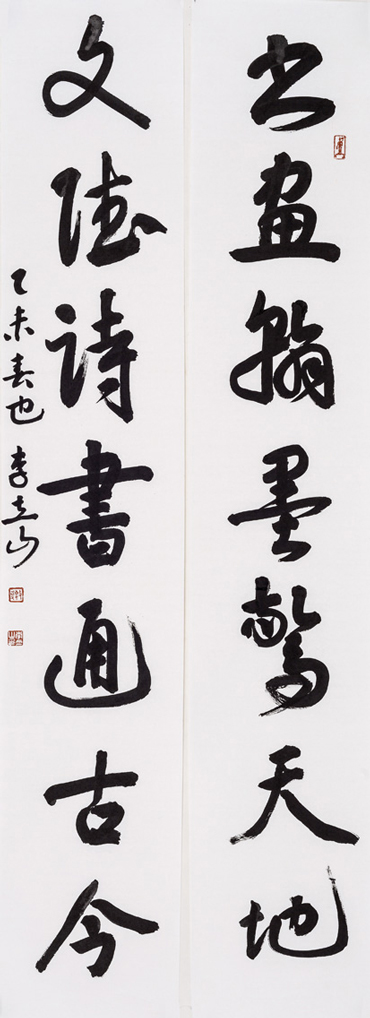 书畫翰墨驚天地
文德诗書通古今
乙未春也 李立山